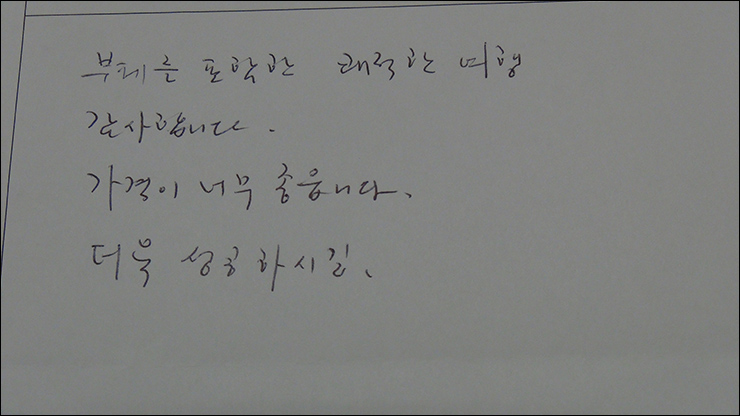 부페를 포함한 쾌적한 여행
감사합니다.
가격이 너무 좋읍니다.
더욱 성공하시길.